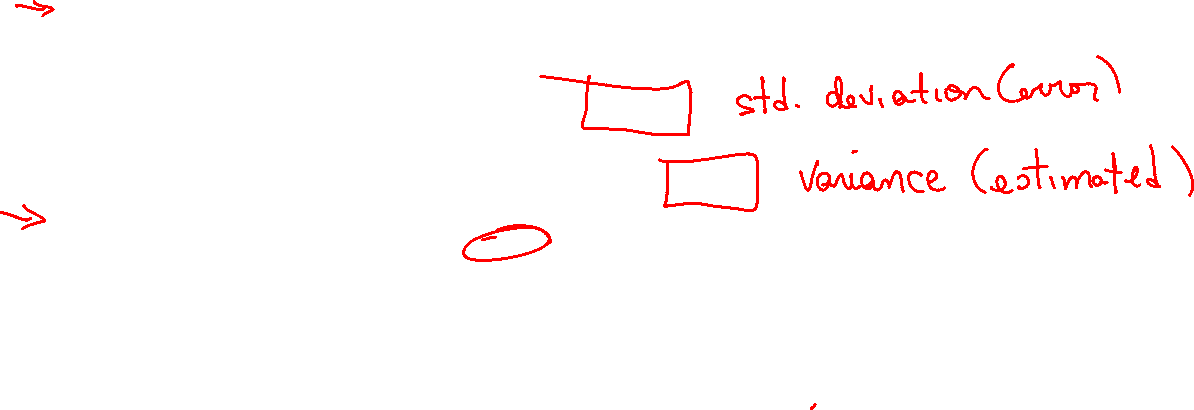 std. deviation (error)
variance (estimated)